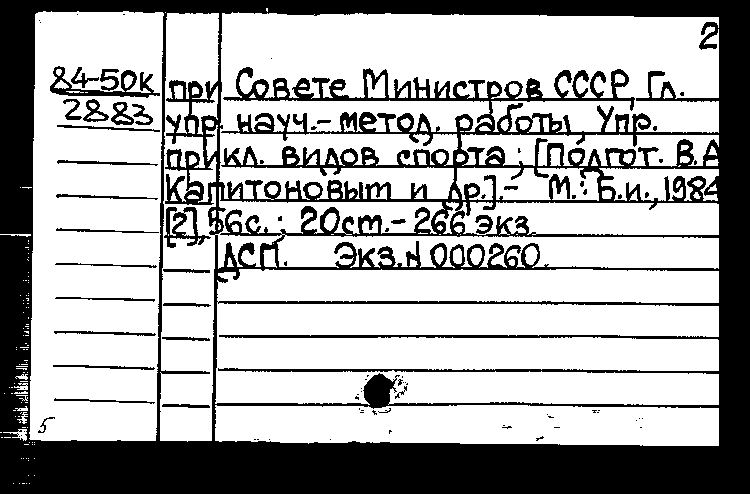 2
84-50к при Совете Министров СССР, Гл.
2883 упр. науч.-метод. работы, Упр.
прикл. видов спорта ; [Подгот. В.А
Капитоновым и др.].- М.: Б.и., 1984
[2], 56с. ; 20см.- 266 экз.
ДСП. Экз.N 000260.
5